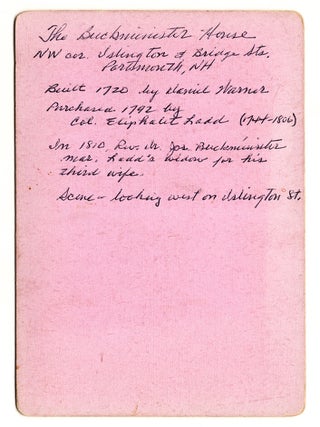 The Buckminister House
NW cor. Islington & Bridge Sts.
Portsmouth, NH
Built 1720 by Daniel Warner
Purchased 1792 by
Col. Eliphalet Ladd (1744-1806)
In 1810, Rev. Dr. Jos. Buckminister
mar. Ladd's widow for his
third wife.
Scene - looking west on Islington St.